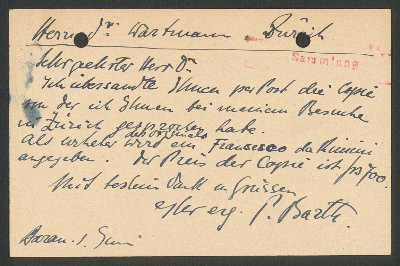 Herrn Dr. Wartmann, Zürich
Sammlung
Sehr geehrter Herr Dr.
Ich übersandte Ihnen per Post die Copie
von der ich Ihnen bei meinem Besuche
in Zürich gesprochen habe.
des Originals
Als Urheber wird ein Francesco da Rimini
angegeben. Der Preis der Copie ist frs 700.
Mit bestem Dank u. Grüssen
Ihr erg. P. Barth.
1. Juni